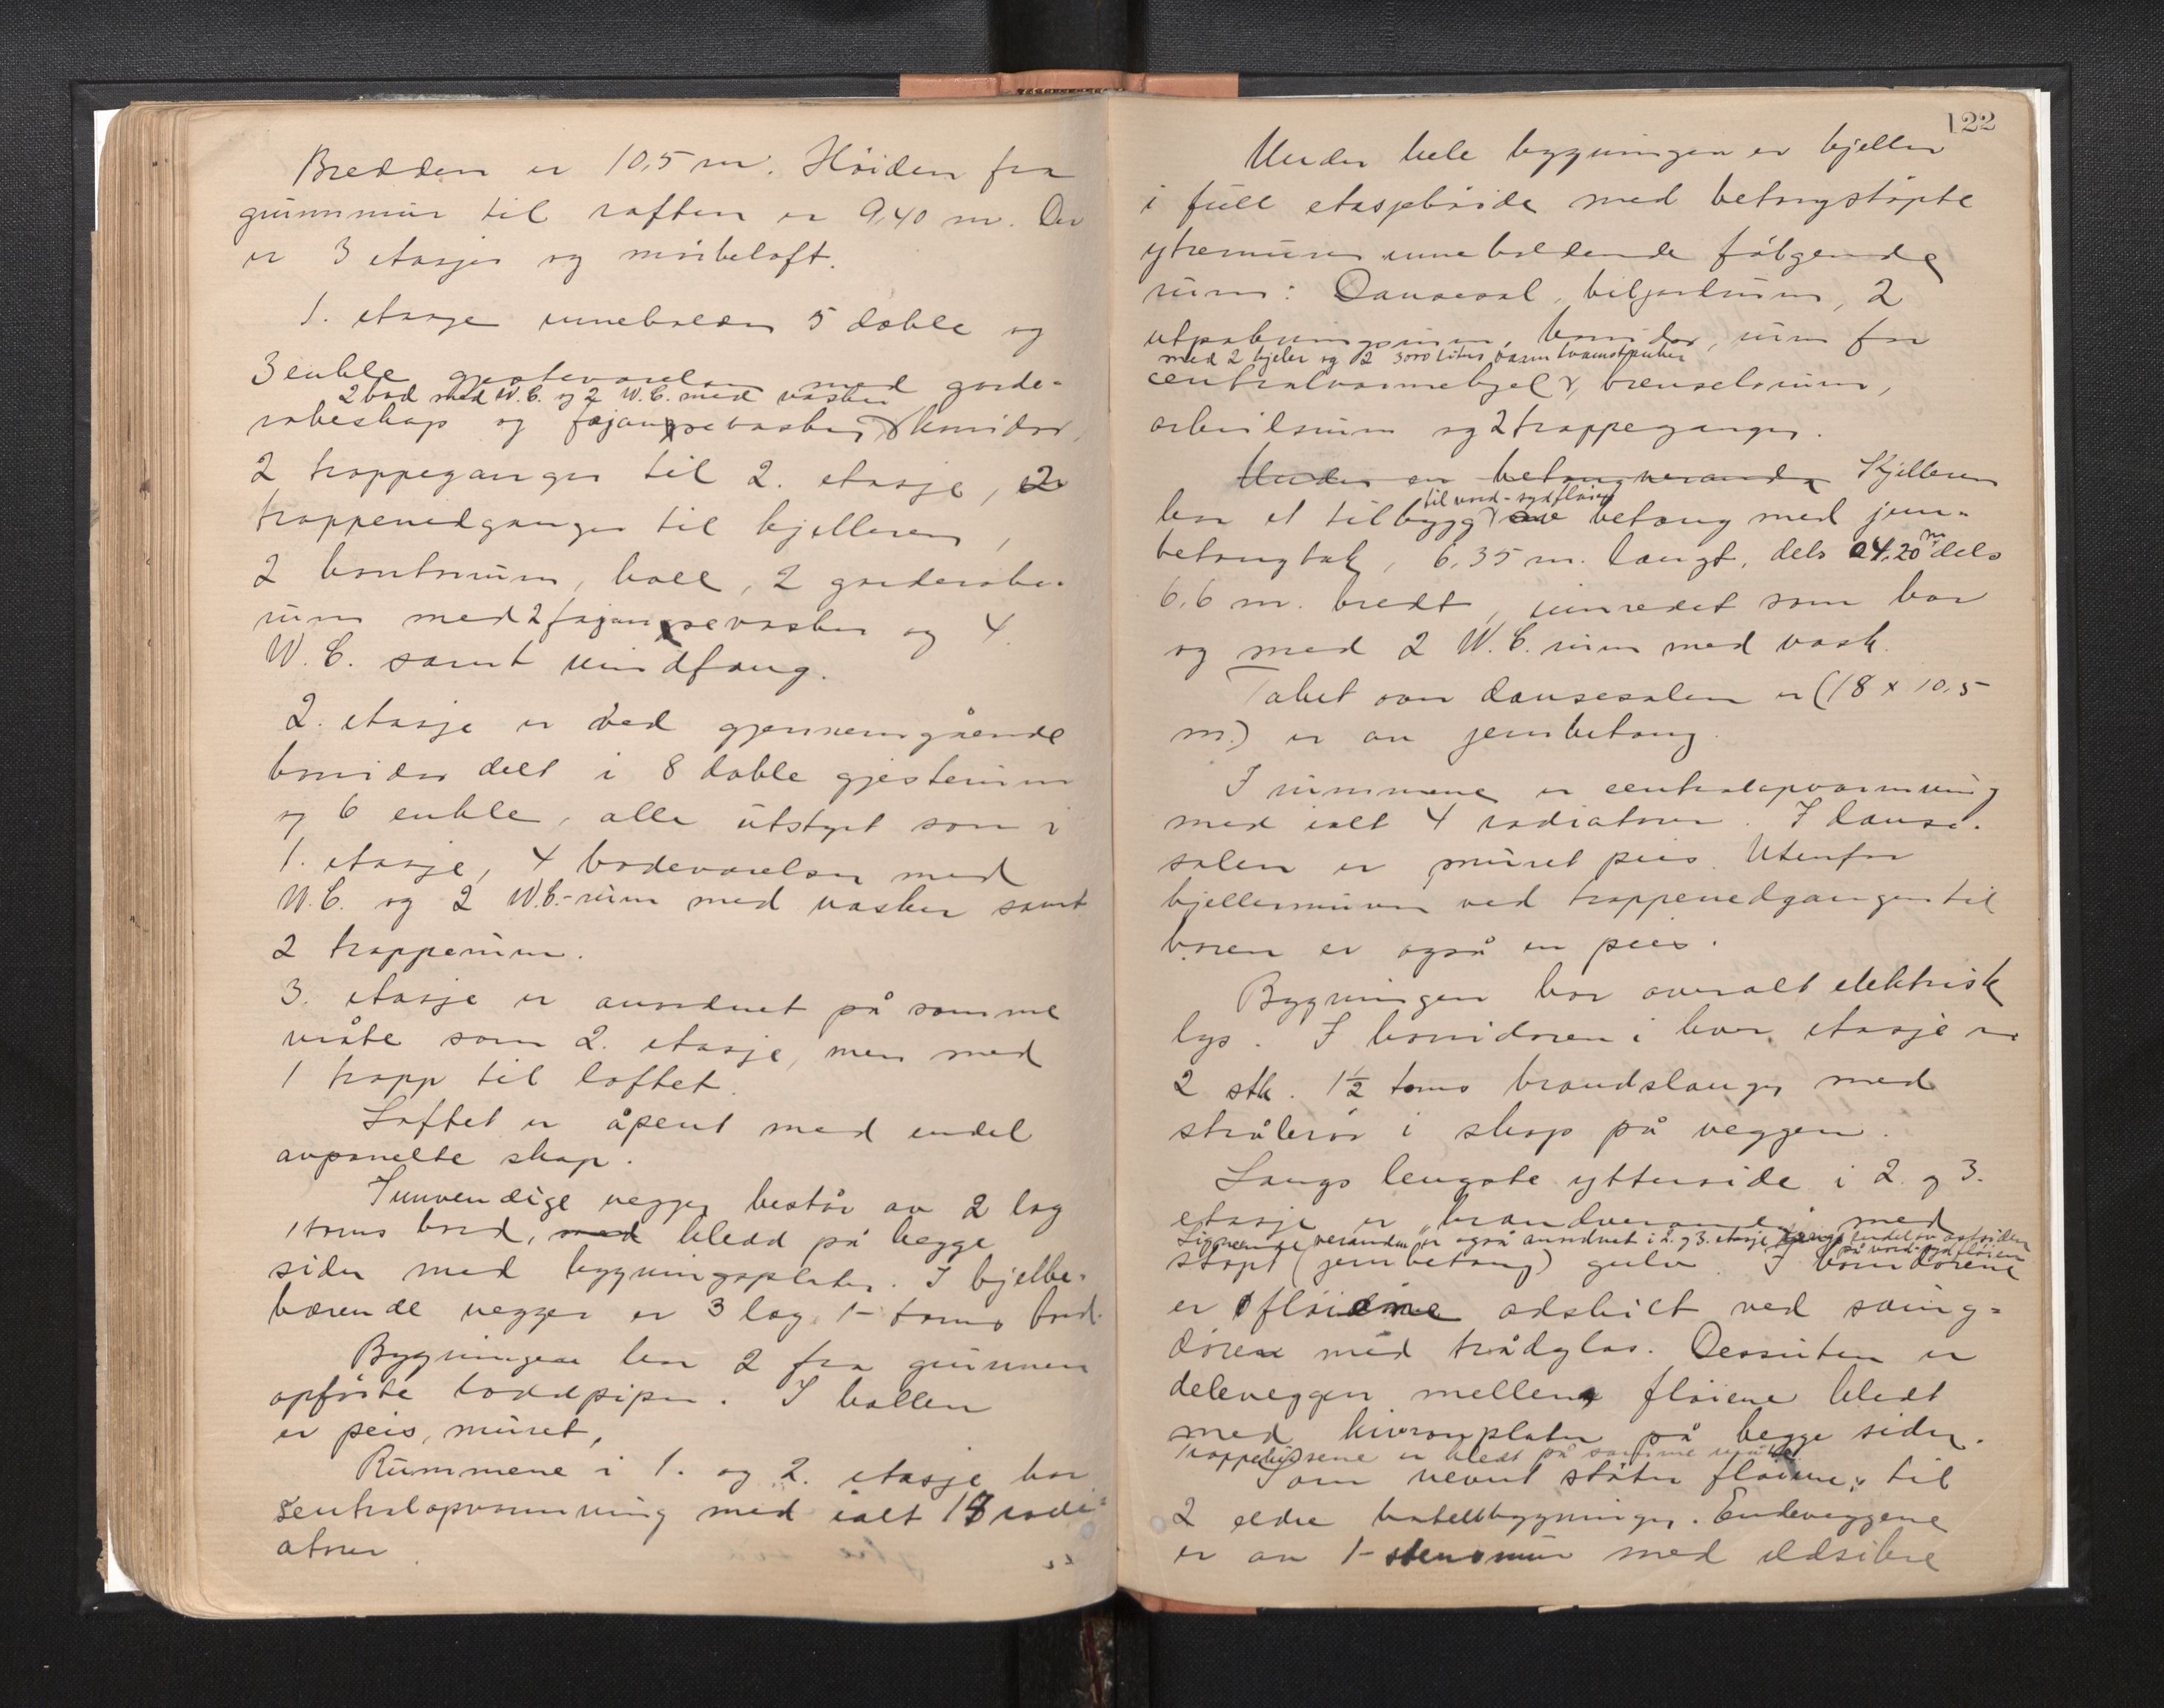 Bredden er 10,5 m. Höiden fra
grunnmur til raften er 9,40 m. Der
er 3 etasjer og mörkeloft.
1. etasje inneholder 5 doble og
3 enkle gjestevärelser med garde-
2 bad med W.C. og 2 W.C. med vasker
robeskap og fajansevasker, korridor,
2 trappeganger til 2. etasje, 2
trappenedganger til kjelleren,
2 kontorrum, hall, 2 garderobe-
rum med 2 fajansevasker og 4
W.C. samt vindfang.
2. etasje er ved gjennemgående
korridor delt i 8 doble gjesterum
og 6 enkle, alle utstyrt som i
1. etasje, 4 badeværelser med
W.C. og 2 W.C.-rum med vasker samt
2 trapperum.
3. etasje er anordnet på samme
måte som 2. etasje, men med
1 trapp til loftet.
Loftet er åpent med endel
avpanelte skap.
Innvendige vegger består av 2 lag
1 toms bord, med kledd på begge
sider med bygningsplater. I bjelke-
bærende vegger er 3 lag 1-toms bord.
Bygningen har 2 fra grunnen
opførte loddpiper. I hallen
er peis, muret,
Rummene i 1. og 2. etasje har
sentralopvarmning med ialt 18 radi-
atorer.
122
Under hele bygningen er kjeller
i full etasjehöide med betongstöpte
ytremurer inneholdende fölgende
rum: Dansesal, biljardrum, 2
utpakningsrum, korridor, rum for
med 2 kjeler og 2 3000 liters varmtvannstanker
centralvarmekjel, brenselsrum,
arkivrum og 2 trappeganger.
Under en betongveranda Kjelleren
til nord-sydfløien
har et tilbygg av betong med jern-
betongtak, 6,35 m. langt, dels 4,20 m dels
6,6 m. bredt, innredet som bar
og med 2 W.C. rum med vask.
Taket over dansesalen er (18 x 10,5
m.) er av jernbetong.
I rummene er centralopvarmning
med ialt 4 radiatorer. I danse-
salen er muret peis. Utenfor
kjellermuren ved trappenedgangen til
baren er også en peis.
Bygningen har overalt elektrisk
lys. I korridoren i hver etasje er
2 stk. 1½ toms brandslanger med
strålerör i skap på veggen.
Langs lengste ytterside i 2. og 3.
etasje er "brandveranda" med
Lignende veranda er også anordnet i 2. og 3. etasje langs endel av østsiden
på nord-sydfløien
støpt (jernbetong) gulv. I korridorene
er fløiene adskilt ved sving-
dører med trådglas. Dessuten er
deleveggen mellem fløiene kledt
med plater på begge sider.
Trappehusene er kledt på samme måte.
Som nevnt støter fløiene til
2 eldre hotellbygninger. Endeveggene
er av 1-stensmur med ildsikre